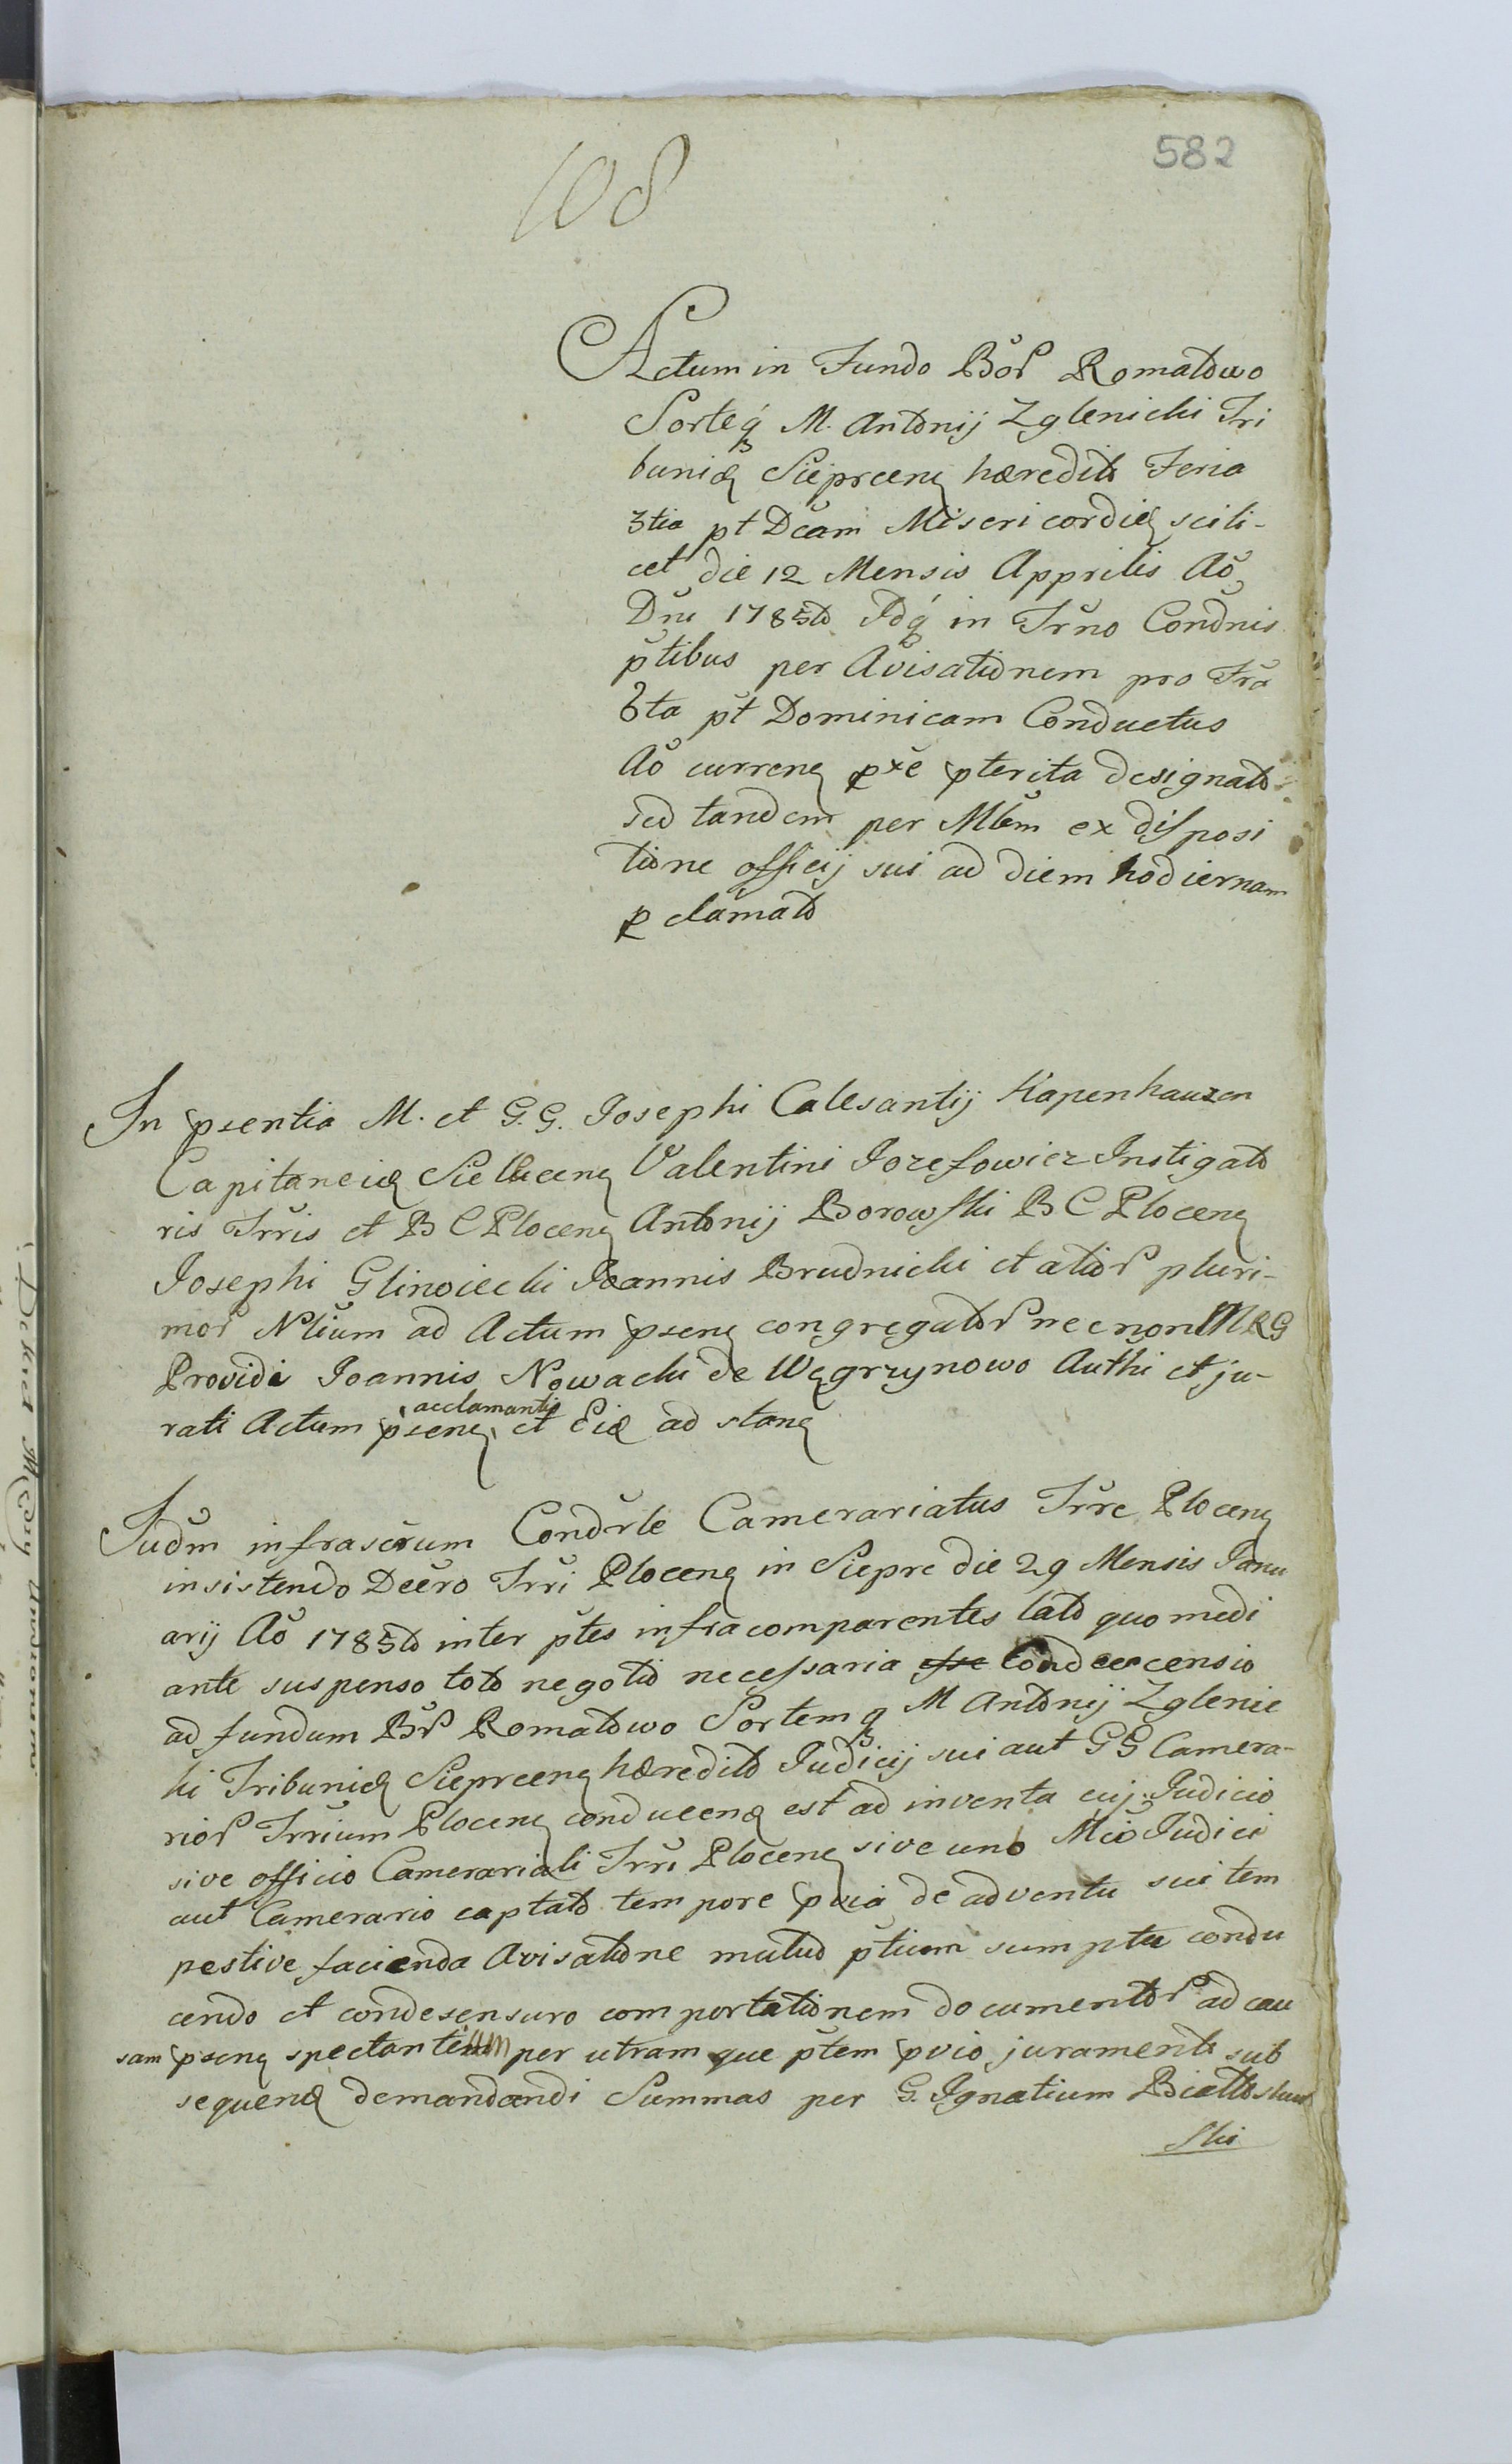 582
108
Actum in Fundo Bor Romatowo
Sorteq M. Antonij Zglenicki Tri
buniq Sieprcenq hæredito Feria
3tia pt Dcam Misericordiæ scili-
cet die 12 Mensis Apprilis Ao
Dni 1785to Idq in Trno Condnis
ptibus per Avisationem pro Fra
6ta pt Dominicam Conductus
Ao currenq pxe pterita designato
sed tandem per Mbm ex disposi
tione officij sui ad diem hodiernam
p clamato
In psentia M. et G.G. Josephi Calesantij Kapenhauzen
Capitaneiq Sielucenq Valentini Jozefowicz Instigato
ris Trris et B C Plocenq Antonij Borowski B C Plocenq
Josephi Glinoiecki Joannis Brudnicki et alior pluri-
mor Nlium ad Actum psenq congregator necnon MRG
Providi Joannis Nowacki de Węgrzynowo Authi et ju-
rati Actum psenq acclamantis et Eiq ad stanq
Judm infrascrum Condrle Camerariatus Trre Plocenq
insistendo Decro Trri Plocenq in Siepre die 29 Mensis Janu
arij Ao 1785to inter ptes infracomparentes lato quo medi
ante suspenso toto negotio necessaria esse Condescensio
ad fundum Br Romatowo Sortemq M Antonij Zglenic
ki Tribuniq Sieprcenq hæredito Judicij sui aut GG Camera-
rior Trrium Plocenq conducenq est ad inventa cuj Judicio
sive officio Camerariali Trri Plocenq sive uno Mco Judici
aut Camerario captato tempore pvia de adventu sui tem
pestive facienda Avisatione mutuo ptium sumptu condu
cendo et condesensuro comportationem documentor ad cau
sam psenq spectantium per utramque ptem pvio juramenti sub
sequenq demandandi Summas per G. Ignatium Biattoskur
ski